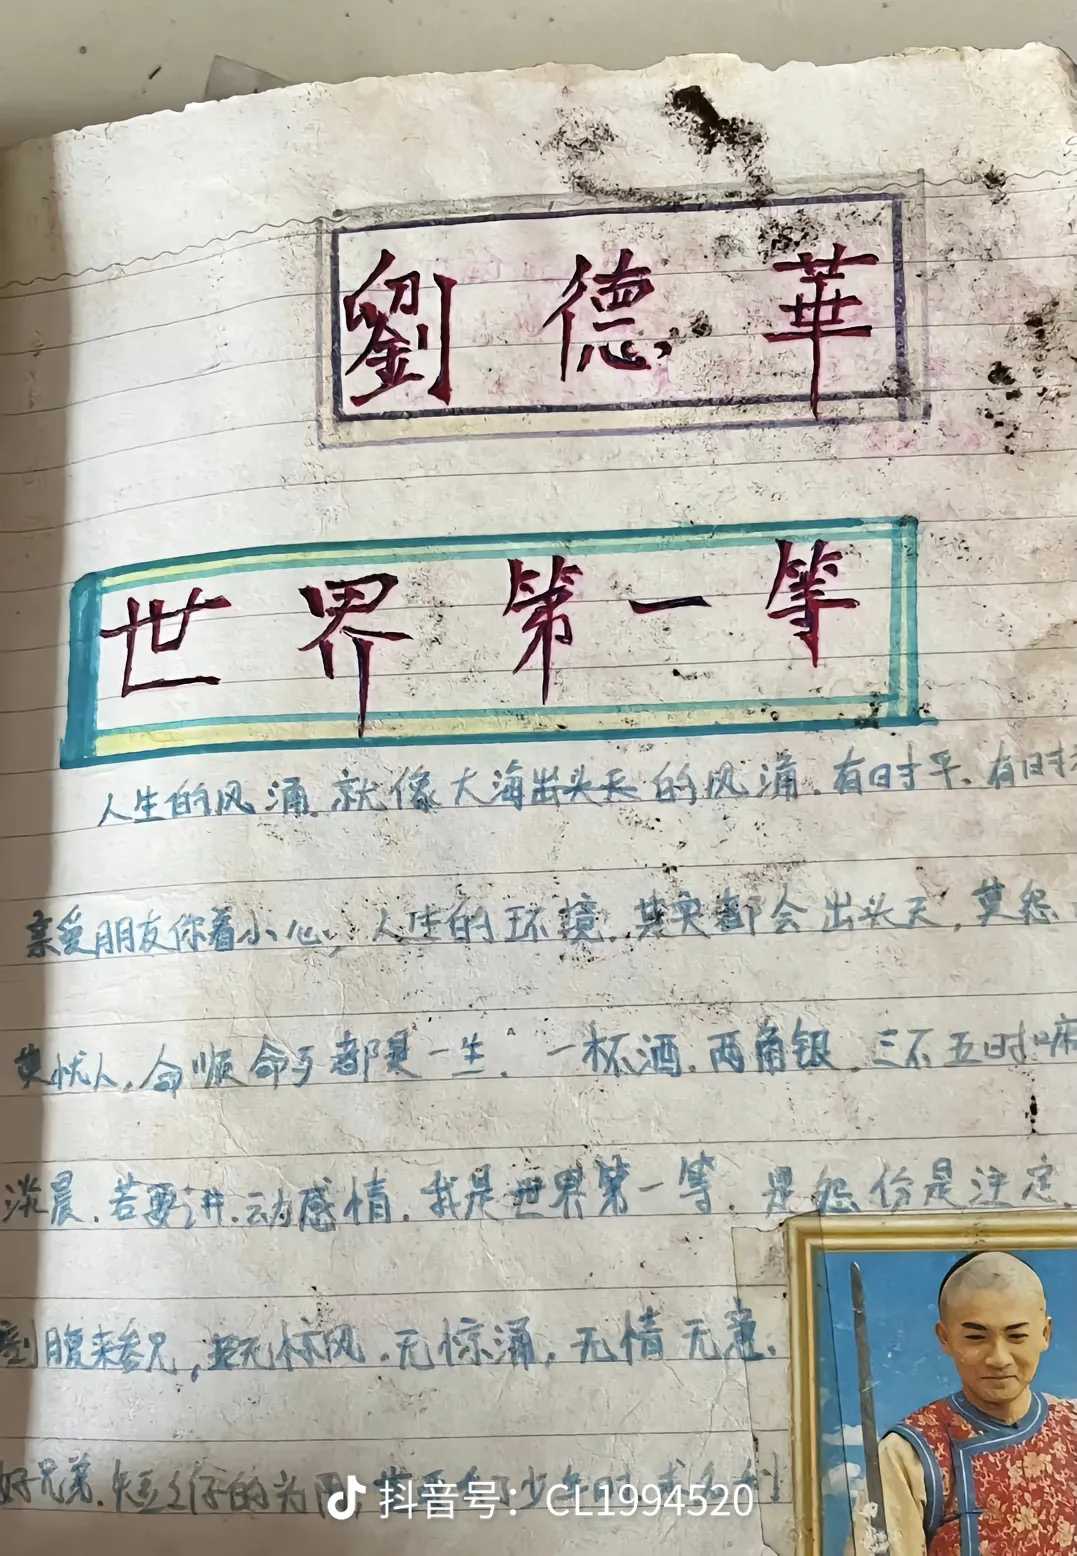 劉德華
世界第一等
人生的风涌.就像大海出头天的风涌.有时平.有时
亲爱朋友你着小心,人生的环境.其实都会出头天,莫怨
莫忧人,命顺命歹都是一生.一杯酒.两角银.三不五时嘛
淡晨.若要讲.动感情.我是世界第一等.是怨份是注定.
腹来参兄,无惊风.无惊涌,无情无意.
好兄弟.
抖音号：CL1994520